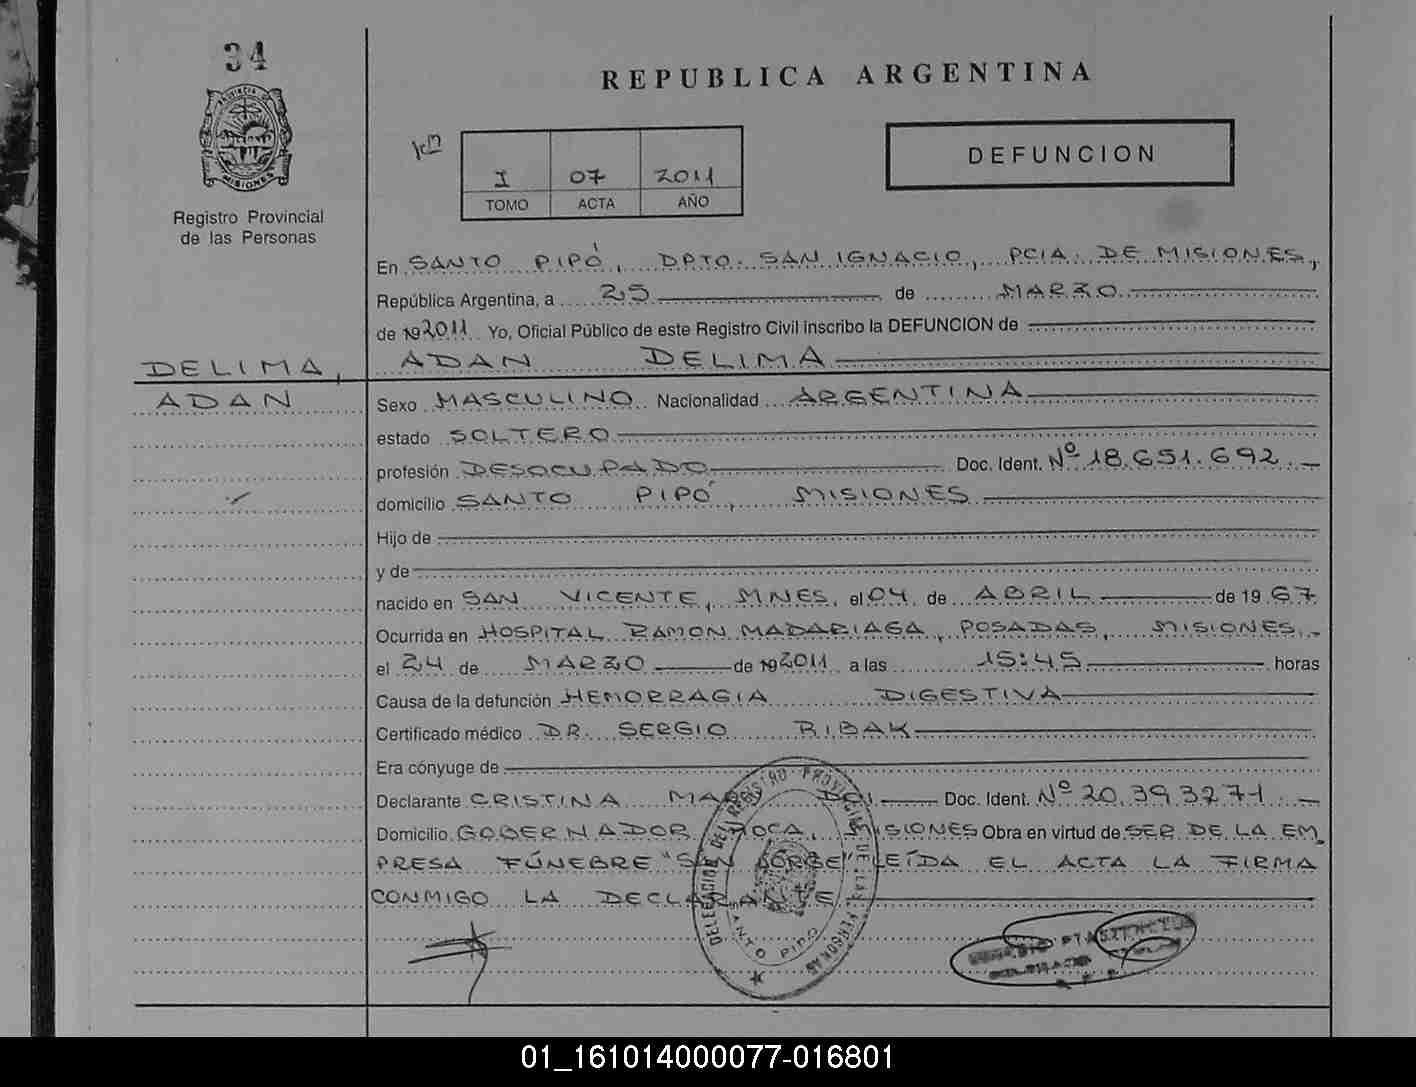 34
PROVINCIA DE
MISIONES
Registro Provincial
de las Personas
REPUBLICA ARGENTINA
I 07 2011
TOMO ACTA AÑO
DEFUNCION
En SANTO PIPÓ, DPTO. SAN IGNACIO, PCIA. DE MISIONES,
República Argentina, a 25 de MARZO
de 192011 Yo, Oficial Público de este Registro Civil inscribo la DEFUNCION de
DELIMA, ADAN DELIMA
ADAN Sexo MASCULINO Nacionalidad ARGENTINA
estado SOLTERO
profesión DESOCUPADO Doc. Ident. Nº 18.651.692
domicilio SANTO PIPÓ, MISIONES
Hijo de
y de
nacido en SAN VICENTE, MNES. el 04 de ABRIL de 1967
Ocurrida en HOSPITAL RAMON MADARIAGA, POSADAS, MISIONES.
el 24 de MARZO de 192011 a las 15:45 horas
Causa de la defunción HEMORRAGIA DIGESTIVA
Certificado médico DR. SERGIO RIBAK
Era cónyuge de
Declarante CRISTINA Doc. Ident. Nº 20.393271
Domicilio GOBERNADOR ROCA, MISIONES Obra en virtud de SER DE LA EM
PRESA FÚNEBRE "SAN JORGE" LEÍDA EL ACTA LA FIRMA
CONMIGO LA DECLARANTE
DELEGACION DEL REGISTRO PROVINCIAL DE LAS PERSONAS
SANTO PIPO
01_161014000077-016801